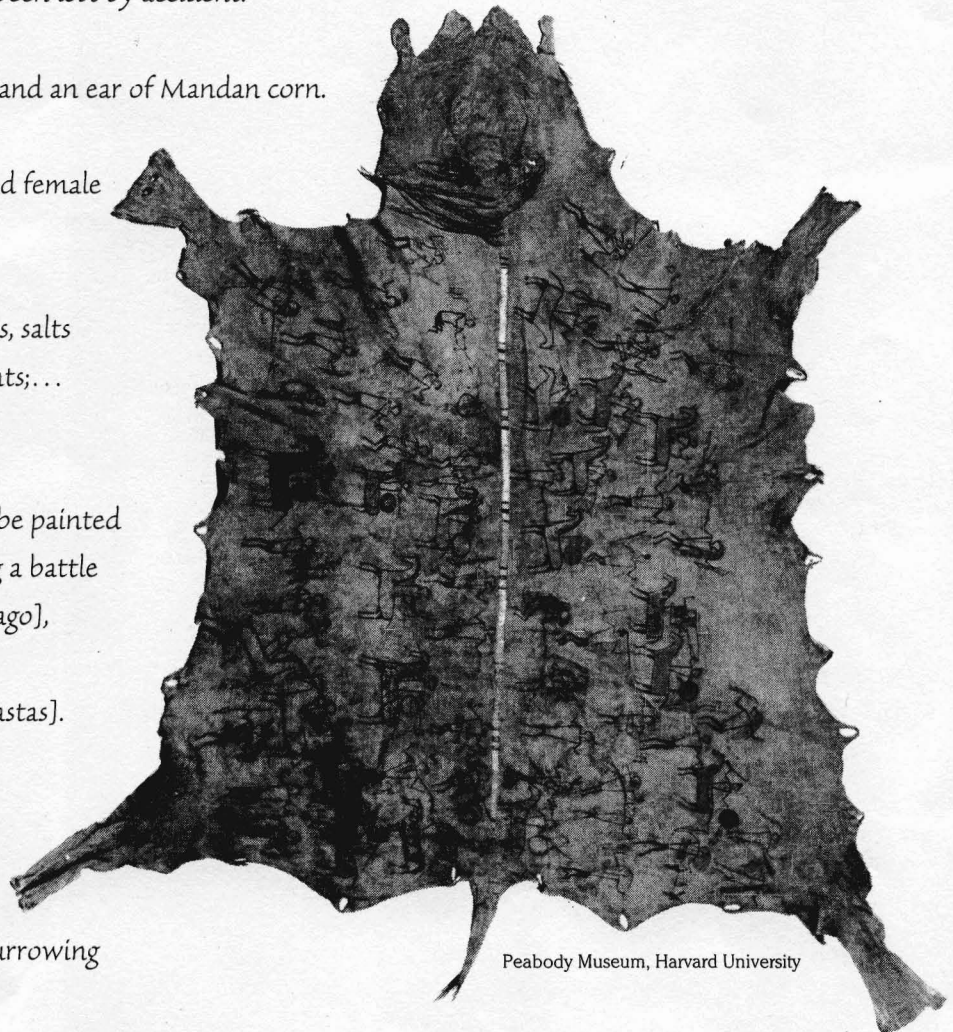 been left by accident.
and an ear of Mandan corn.
d female
s, salts
nts;...
be painted
g a battle
ago],
astas].
urrowing
Peabody Museum, Harvard University